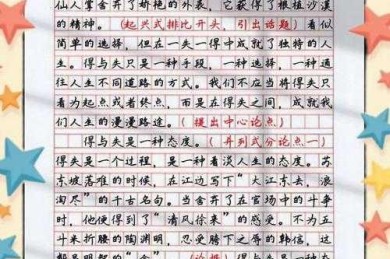 仙人掌舍弃了娇艳的外表，它获得了根植沙漠
的精神。（起兴式排比开头，引出话题）看似
简单的选择，但在一失一得中成就了独特的人
生。得与失只是一种手段，一种选择，一种通
往人生不同道路的方式。我们不应当将得失只
看为起点或者终点，而是在得失之间，成就我
们人生的漫漫路途。（提出中心论点）
得与失是一种态度。（并列式分论点一）
得失是一个过程，是一种看淡人生的态度。苏
东坡落难的时候，在江边写下“大江东去，浪
淘尽”的千古名句。当舍弃了在官场中的斗争
时，他便得到了“清风徐来”的感受。不为五
斗米折腰的陶渊明，忍受胯下之辱的韩信，这